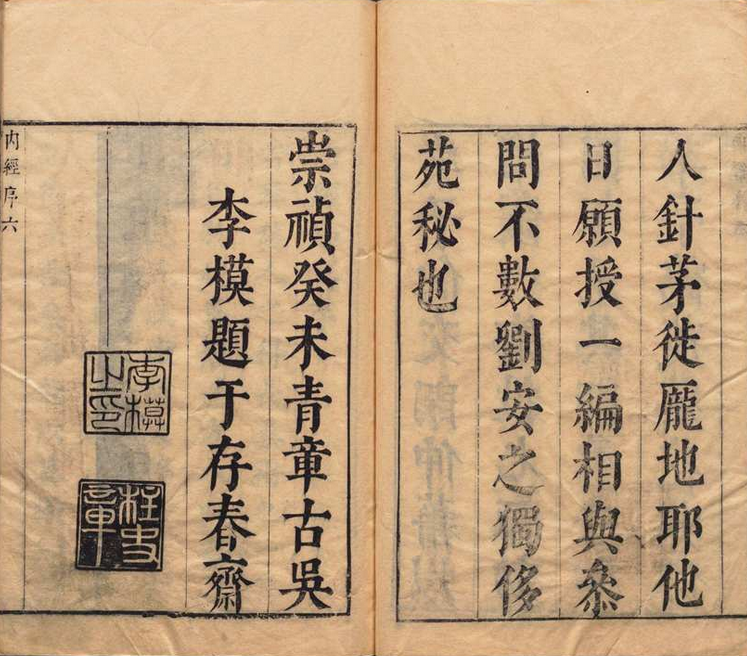 人針茅徙龎地耶他
日願授一編相與叅
問不數劉安之獨侈
苑秘也
崇禎癸未青章古吳
李模題于存春齋
李模之印
柱史章
內經序六